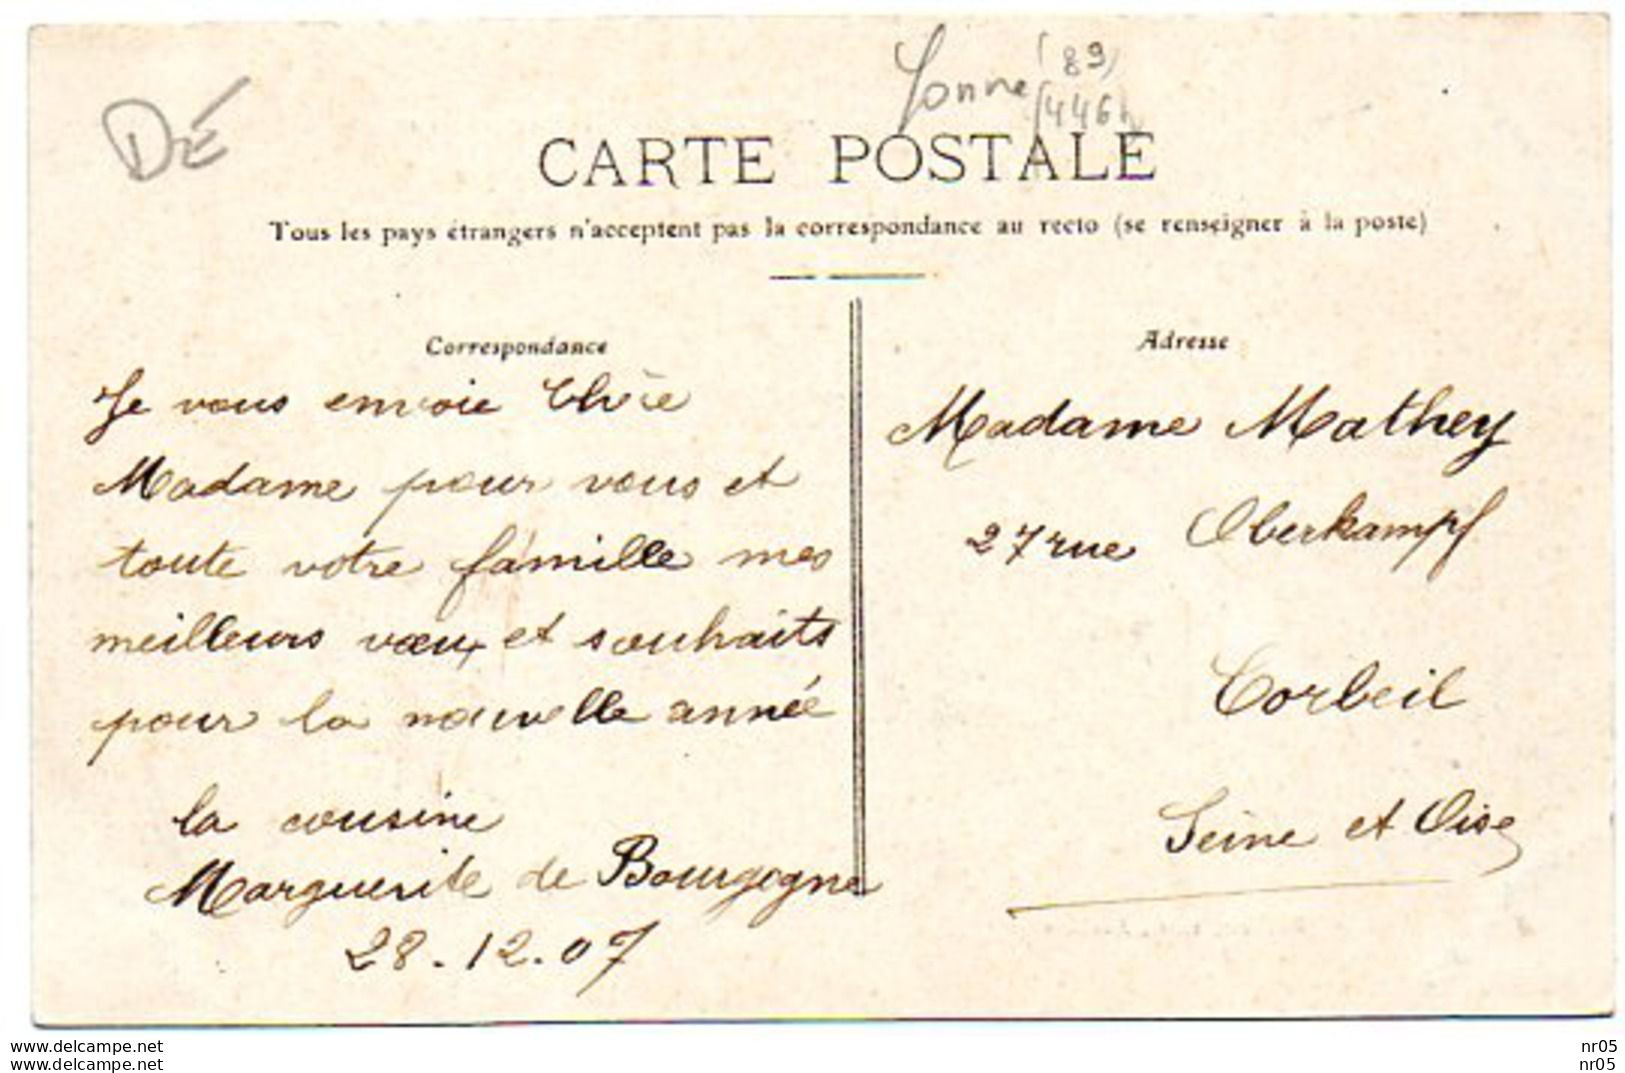 DÉ
Yonne (89)
(446
CARTE POSTALE
Tous les pays étrangers n'acceptent pas la correspondance au recto (se renseigner à la poste)
Correspondance
Je vous envoie Chère
Madame pour vous et
toute votre famille mes
meilleurs vœux et souhaits
pour la nouvelle année
la cousine
Marguerite de Bourgogne
28.12.07
Adresse
Madame Mathey
27 rue Oberkampf
Corbeil
Seine et Oise
www.delcampe.net
www.delcampe.net
nr05
nr05